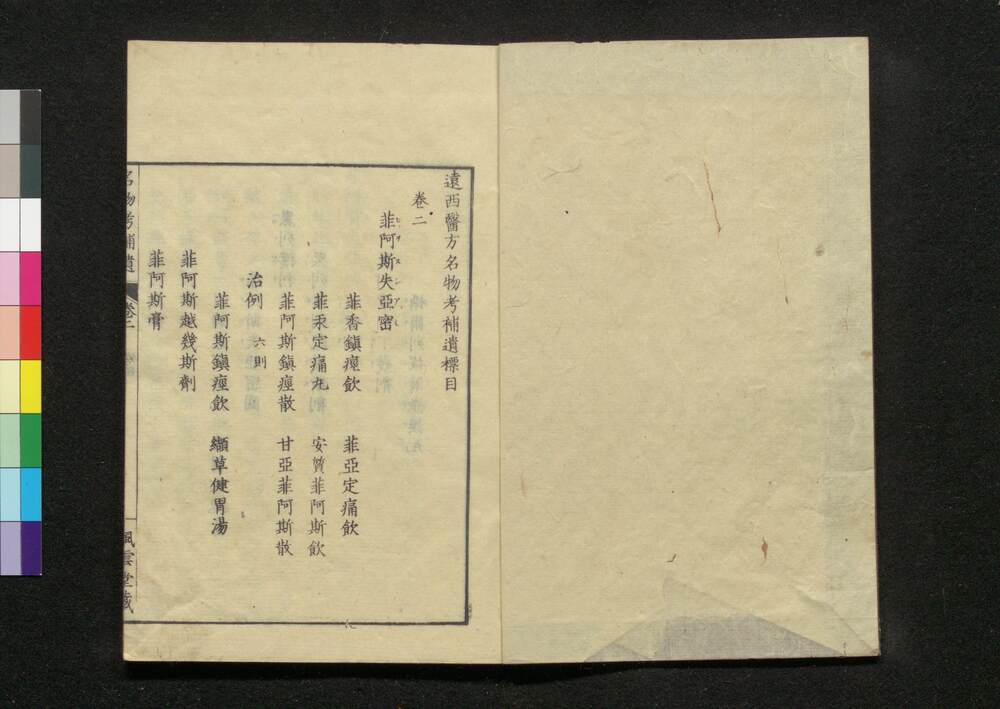 遠西醫方名物考補遺標目
卷二
菲阿斯失亞密
菲香鎮痙飲 菲亞定痛飲
菲汞定痛丸 安質菲阿斯飲
菲阿斯鎮痙散 甘亞菲阿斯散
治例 六則
菲阿斯鎮痙飲 纈草健胃湯
菲阿斯越幾斯劑
菲阿斯膏
名物考補遺 卷二 風雲堂藏